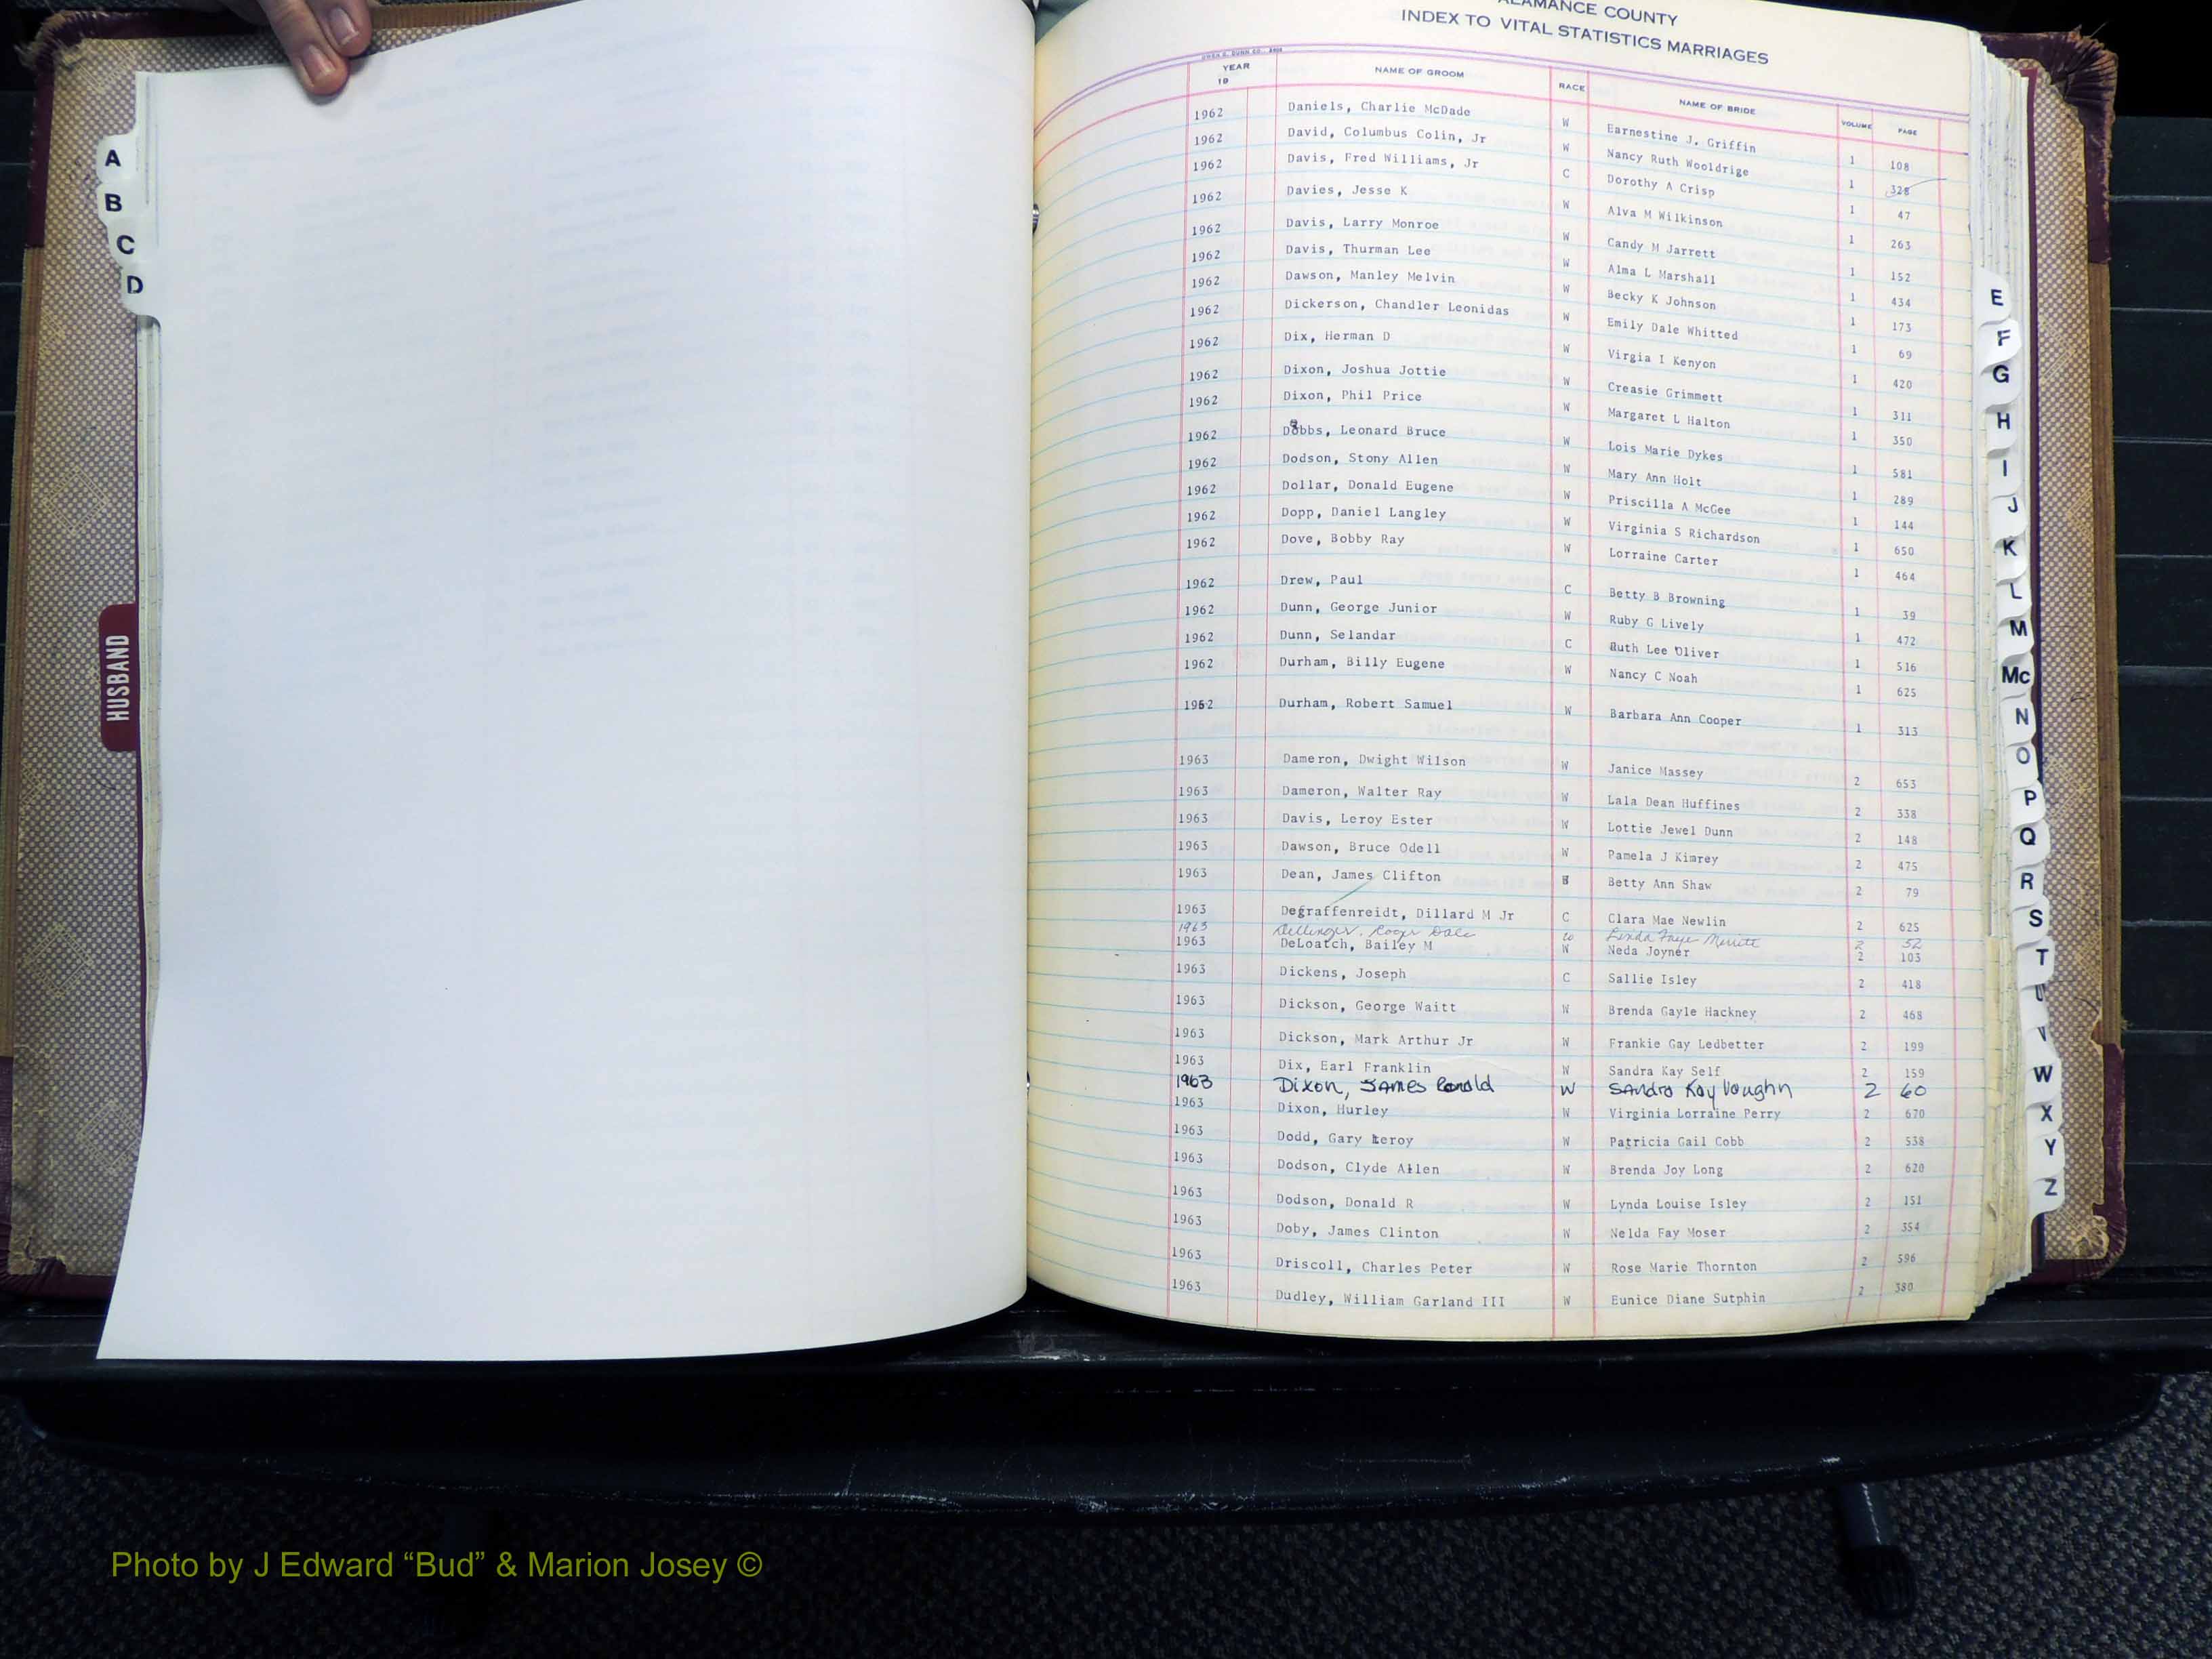 ALAMANCE COUNTY
INDEX TO VITAL STATISTICS MARRIAGES
OWEN G. DUNN CO.
YEAR 19 NAME OF GROOM RACE NAME OF BRIDE VOLUME PAGE
1962 Daniels, Charlie McDade W Earnestine J. Griffin 1 108
1962 David, Columbus Colin, Jr W Nancy Ruth Wooldrige 1 328
1962 Davis, Fred Williams, Jr C Dorothy A Crisp 1 47
1962 Davies, Jesse K W Alva M Wilkinson 1 263
1962 Davis, Larry Monroe W Candy M Jarrett 1 152
1962 Davis, Thurman Lee W Alma L Marshall 1 434
1962 Dawson, Manley Melvin W Becky K Johnson 1 173
1962 Dickerson, Chandler Leonidas W Emily Dale Whitted 1 69
1962 Dix, Herman D W Virgia I Kenyon 1 420
1962 Dixon, Joshua Jottie W Creasie Grimmett 1 311
1962 Dixon, Phil Price W Margaret L Halton 1 350
1962 Dobbs, Leonard Bruce W Lois Marie Dykes 1 581
1962 Dodson, Stony Allen W Mary Ann Holt 1 289
1962 Dollar, Donald Eugene W Priscilla A McGee 1 144
1962 Dopp, Daniel Langley W Virginia S Richardson 1 650
1962 Dove, Bobby Ray W Lorraine Carter 1 464
1962 Drew, Paul C Betty B Browning 1 39
1962 Dunn, George Junior W Ruby G Lively 1 472
1962 Dunn, Selandar C Ruth Lee Oliver 1 516
1962 Durham, Billy Eugene W Nancy C Noah 1 625
1962 Durham, Robert Samuel W Barbara Ann Cooper 1 313
1963 Dameron, Dwight Wilson W Janice Massey 2 653
1963 Dameron, Walter Ray W Lala Dean Huffines 2 338
1963 Davis, Leroy Ester W Lottie Jewel Dunn 2 148
1963 Dawson, Bruce Odell W Pamela J Kimrey 2 475
1963 Dean, James Clifton Betty Ann Shaw 2 79
1963 Degraffenreidt, Dillard M Jr C Clara Mae Newlin 2 625
1963 Dellinger, Roger Dale W Linda Faye Merritt 2 52
1963 DeLoatch, Bailey M W Neda Joyner 2 103
1963 Dickens, Joseph C Sallie Isley 2 418
1963 Dickson, George Waitt W Brenda Gayle Hackney 2 468
1963 Dickson, Mark Arthur Jr W Frankie Gay Ledbetter 2 199
1963 Dix, Earl Franklin W Sandra Kay Self 2 159
1963 Dixon, James Ronald W Sandra Kay Vaughn 2 60
1963 Dixon, Hurley W Virginia Lorraine Perry 2 670
1963 Dodd, Gary Leroy W Patricia Gail Cobb 2 538
1963 Dodson, Clyde Allen W Brenda Joy Long 2 620
1963 Dodson, Donald R W Lynda Louise Isley 2 151
1963 Doby, James Clinton W Nelda Fay Moser 2 354
1963 Driscoll, Charles Peter W Rose Marie Thornton 2 596
1963 Dudley, William Garland III W Eunice Diane Sutphin 2 380
A
B
C
D
HUSBAND
E
F
G
H
I
J
K
L
M
Mc
N
O
P
Q
R
S
T
U
V
W
X
Y
Z
Photo by J Edward “Bud” & Marion Josey ©